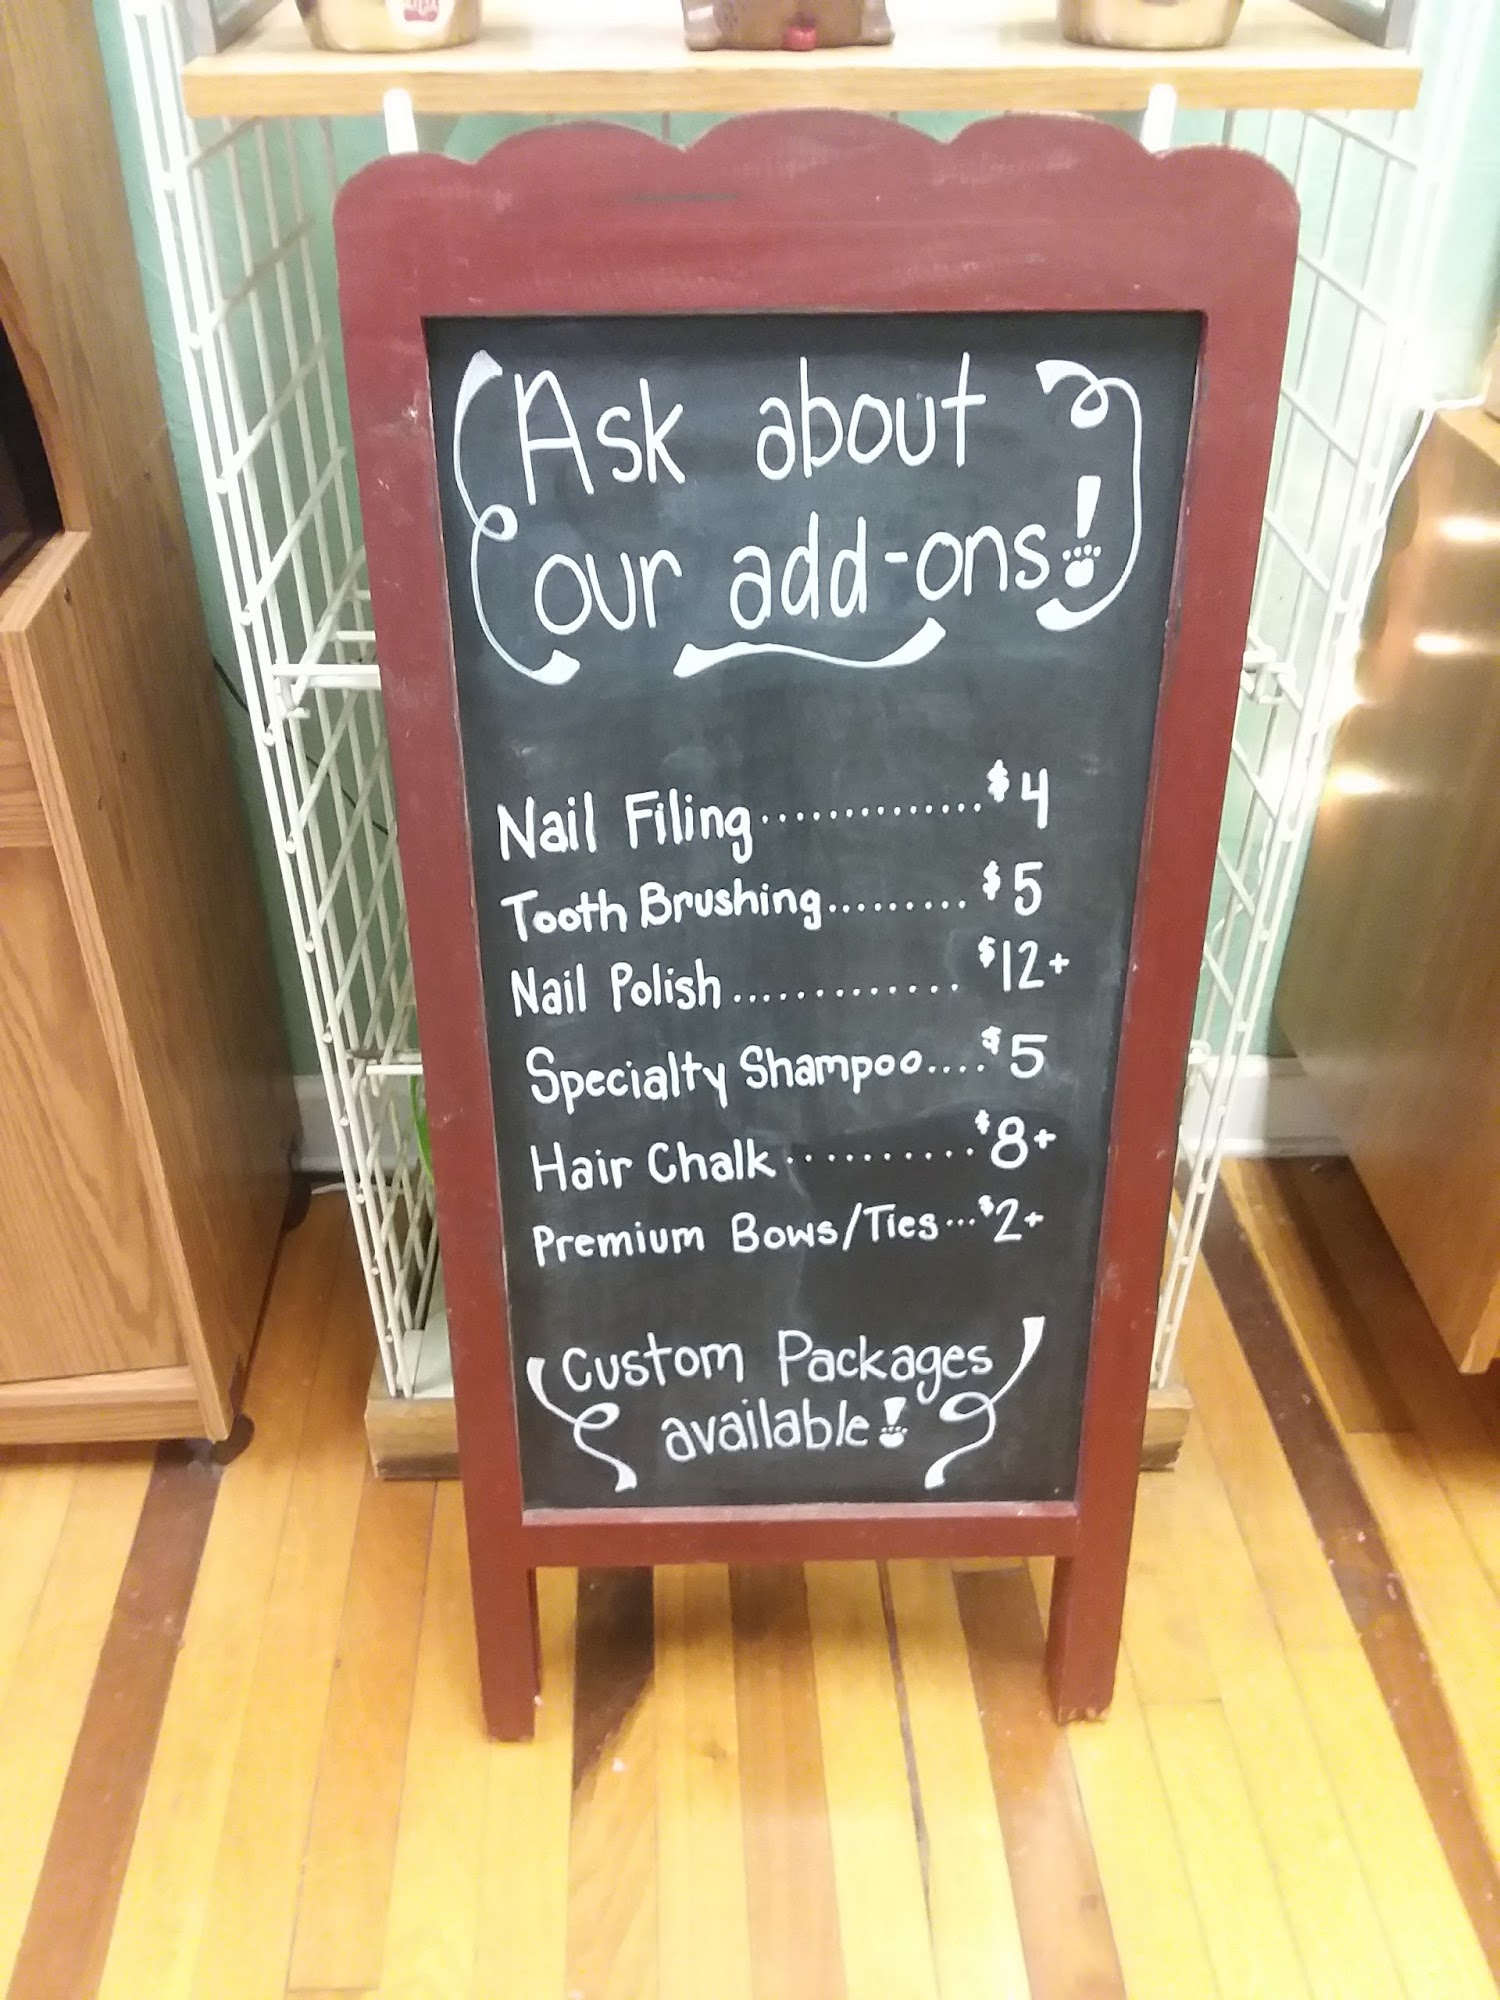 Ask about
our add-ons!
Nail Filing..............$4
Tooth Brushing.........$5
Nail Polish.............$12+
Specialty Shampoo....$5
Hair Chalk..........$8+
Premium Bows/Ties...$2+
Custom Packages
available!